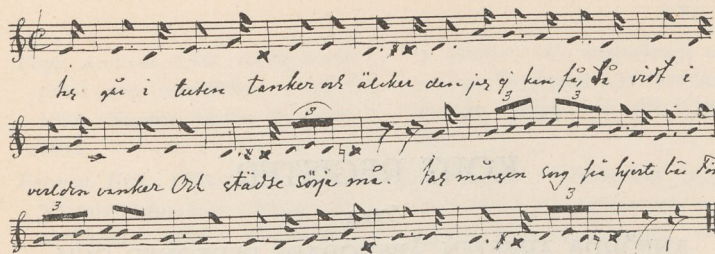 Jag går i tusen tankar och älsker den jag ej kan få, så vidt i
verlden vanker Och städse sörja må. Jag mången sorg på hjerte bär För